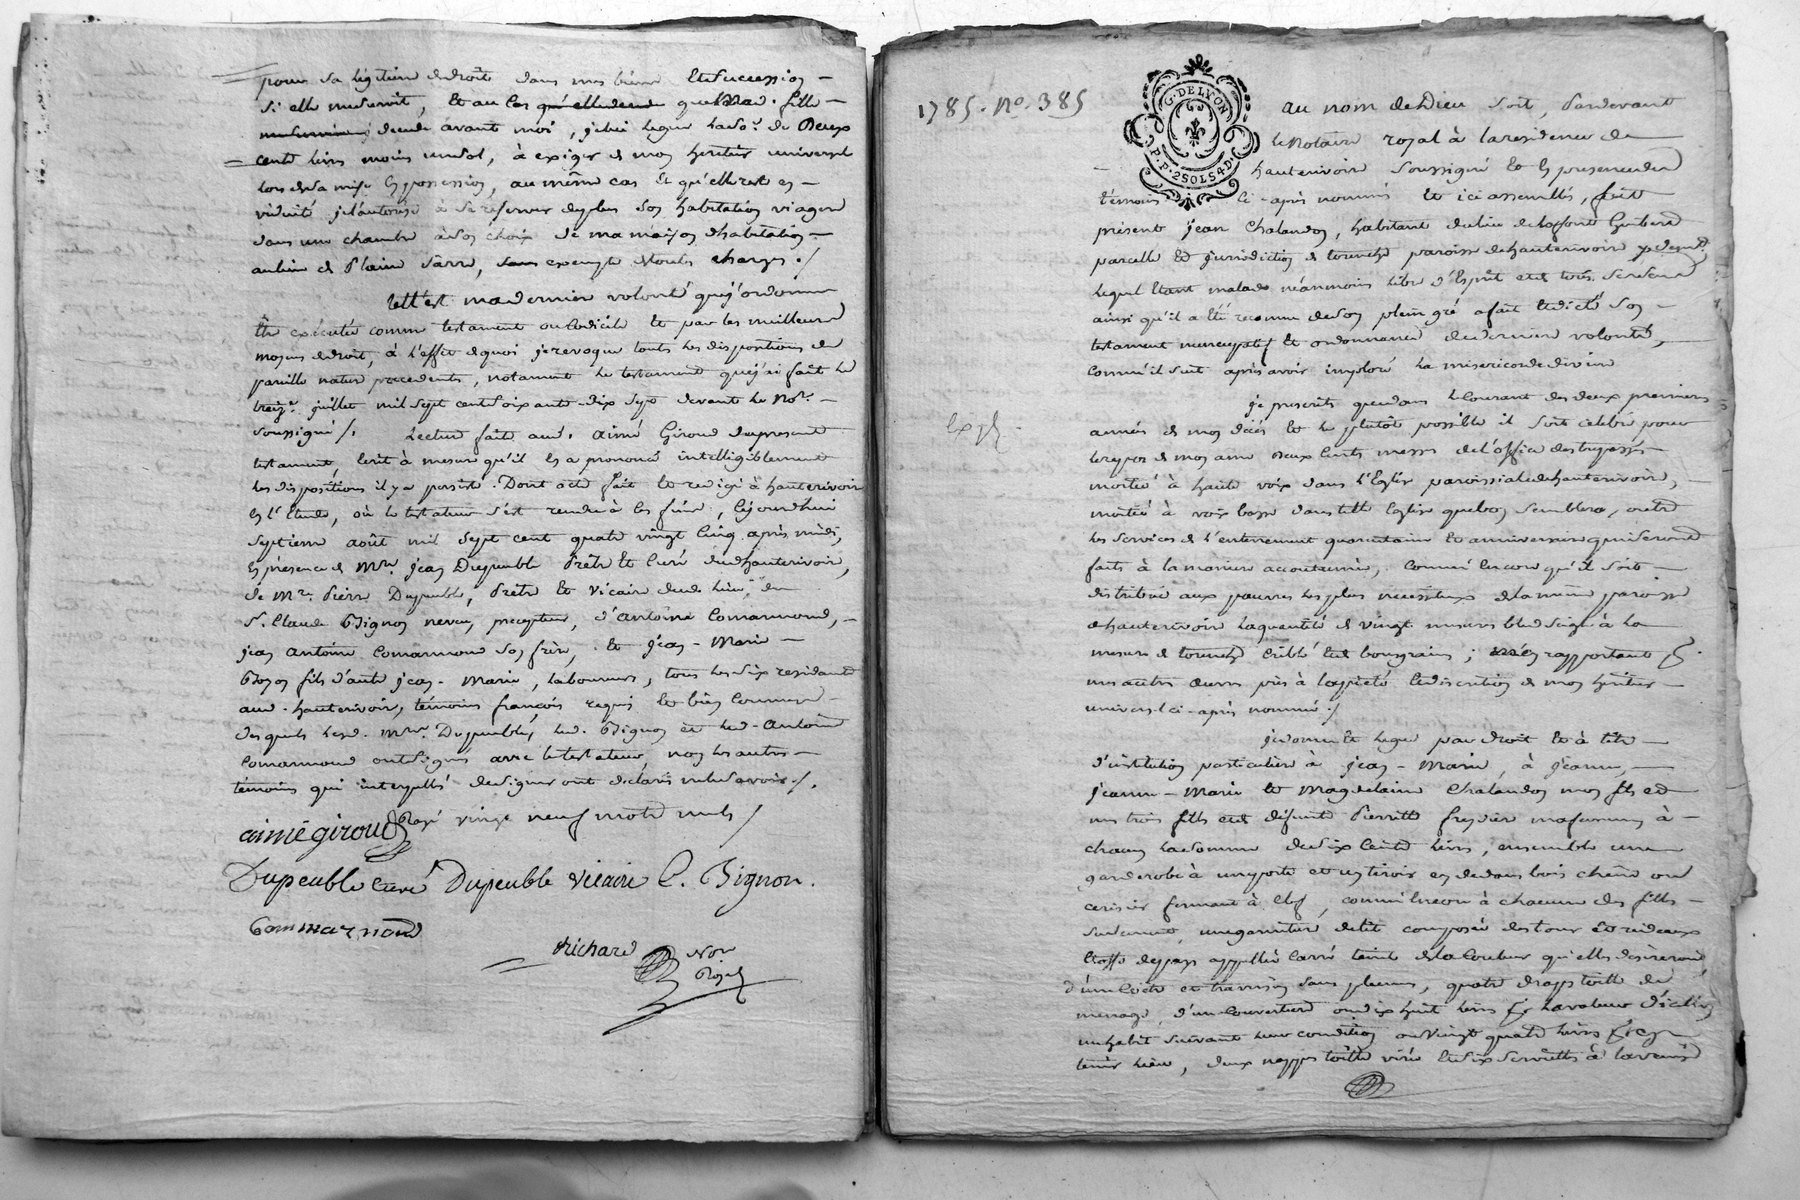 pour sa légitime de droits dans mes biens et succession
si elle me survit, et au cas que lad. fille
décede avant moi, je lui legue la so.e de Deux
cents livres moins un sol, à exiger de mon heritier universel
lors de sa mise en possession, au même cas et qu'elle reste en
viduité je l'autorise à se reserver de plus son habitation viagere
dans une chambre à son choix de ma maison d'habitation
au lieu de Plaine Sarre, exempte de toutes charges ./
telle est ma derniere volonté que j'ordonne
être exécutée comme testament ou codicile et par les meilleurs
moyens de droit, à l'effet de quoi je revoque toutes les dispositions de
pareille nature precedentes, notament le testament que j'ai fait le
treize juillet mil sept cent soixante dix sept devant le No.re
soussigné /. Lecture faite aud. aimé Giroud du present
testament, écrit à mesure qu'il en a prononcé intelligiblement
les dispositions il y a persisté. Dont acte fait et redigé à hauterivoire
en l'Etude, où le testateur s'est rendu à ces fins, cejourd'hui
septieme août mil sept cent quatre vingt cinq après midi,
en présence de M.re jean Dupeuble Prêtre et Curé dud. hauterivoire,
de M.re Pierre Dupeuble, Prêtre et Vicaire dud. lieu, de
S.r Claude Bignon neveu, precepteur, d'antoine Comarmond,
jean antoine Comarmond son frère, et jean-Marie
fils d'autre jean-Marie, laboureurs, tous les six residants
aud. hauterivoire, témoins français requis et bien connus
desquels lesd. M.res Dupeuble, led. Bignon et led. Antoine
Comarmond ont signés avec le testateur, non les autres
témoins qui interpellés de signer ont déclaré ne le savoir /.
Rayé vingt neuf mots nuls /
aimé giroud
Dupeuble curé Dupeuble vicaire C. Bignon.
Commarmond
Richard No.re
Royal
1785. No. 385
G. DE LYON
P. P. 2 SOLS 4 D.
au nom de Dieu soit, Pardevant
le Notaire royal à la residence de
hauterivoire soussigné et en presence des
témoins ci-après nommés et ici assemblés, fut
présent jean Chalandon, habitant du lieu de
parcelle et jurisdiction de paroisse de hauterivoire
lequel étant malade néanmoins libre d'esprit et de tous ses sens
ainsi qu'il a été reconnu de son plein gré a fait et dicté son
testament nuncupatif et ordonnance de derniere volonté,
comme il suit après avoir imploré la misericorde divine
je prescrits que dans le courant des deux premieres
années de mon décés et le plutôt possible il soit célébré pour
le repos de mon ame deux cents messes de l'office des trepassés
moitié à haute voix dans l'Eglise paroissiale de hauterivoire,
moitié à voix basse dans telle Eglise que bon semblera, outre
les services de l'enterrement quarantaine et anniversaire qui seront
faits à la maniere accoutumée; comme encore qu'il soit
distribué aux pauvres les plus necessiteux de la même paroisse
de hauterivoire la quantité de vingt mesures bled seigle à la
mesure de criblé et de bon grain; m'en rapportant
mes autres œuvres pies à la pieté et discretion de mon heritier
universel ci-après nommé :/
je donne et legue par droit et à titre
d'institution particuliere à jean-Marie, à jeanne,
jeanne-Marie et Magdelaine Chalandon mon fils et
mes trois filles et de défunte Pierrette ma femme, à
chacun la somme de six cents livres, ensemble une
garderobe à une porte et un tiroir en dedans bois chêne ou
cerisier fermant à clef, comme encore à chacune des filles
seulement, une garniture de lit composée des tour et rideaux
étoffe de pays appellée carré teinte de la couleur qu'elles desireront,
d'un coitre et traversin sans plumes, quatre draps toille de
menage, d'une couverture ou dix huit livres la valeur d'icelle,
un habit suivant leur condition ou vingt quatre livres pour en
tenir lieu, deux nappes toille et six serviettes à la venise